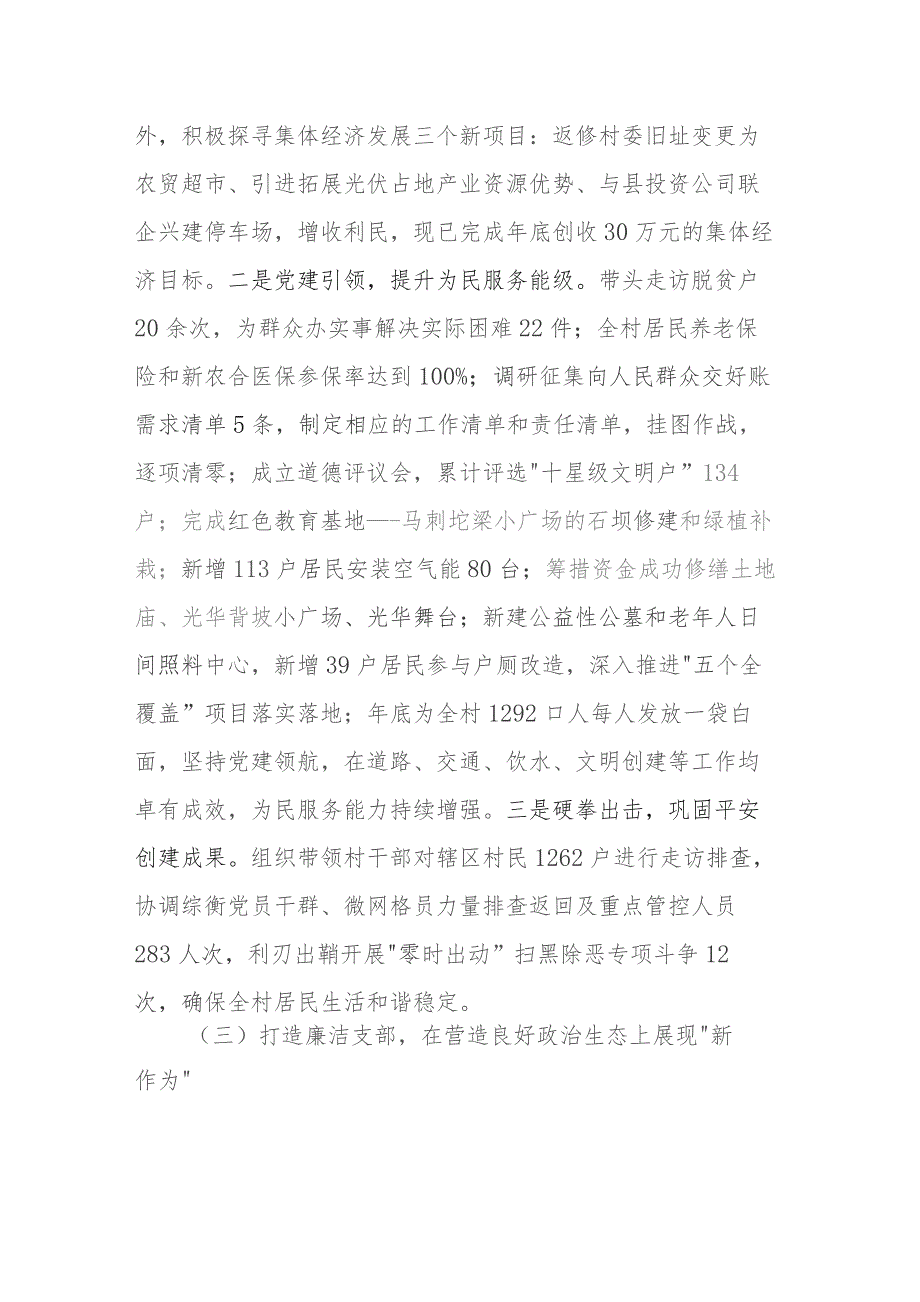 外，积极探寻集体经济发展三个新项目：返修村委旧址变更为
农贸超市、引进拓展光伏占地产业资源优势、与县投资公司联
企兴建停车场，增收利民，现已完成年底创收30万元的集体经
济目标。二是党建引领，提升为民服务能级。带头走访脱贫户
20余次，为群众办实事解决实际困难22件；全村居民养老保
险和新农合医保参保率达到100%；调研征集向人民群众交好账
需求清单5条，制定相应的工作清单和责任清单，挂图作战，
逐项清零；成立道德评议会，累计评选"十星级文明户”134
户；完成红色教育基地——-马刺坨梁小广场的石坝修建和绿植补
栽；新增113户居民安装空气能80台；筹措资金成功修缮土地
庙、光华背坡小广场、光华舞台；新建公益性公墓和老年人日
间照料中心，新增39户居民参与户厕改造，深入推进"五个全
覆盖”项目落实落地；年底为全村1292口人每人发放一袋白
面，坚持党建领航，在道路、交通、饮水、文明创建等工作均
卓有成效，为民服务能力持续增强。三是硬拳出击，巩固平安
创建成果。组织带领村干部对辖区村民1262户进行走访排查，
协调综衡党员干群、微网格员力量排查返回及重点管控人员
283人次，利刃出鞘开展"零时出动”扫黑除恶专项斗争12
次，确保全村居民生活和谐稳定。
（三）打造廉洁支部，在营造良好政治生态上展现"新
作为"